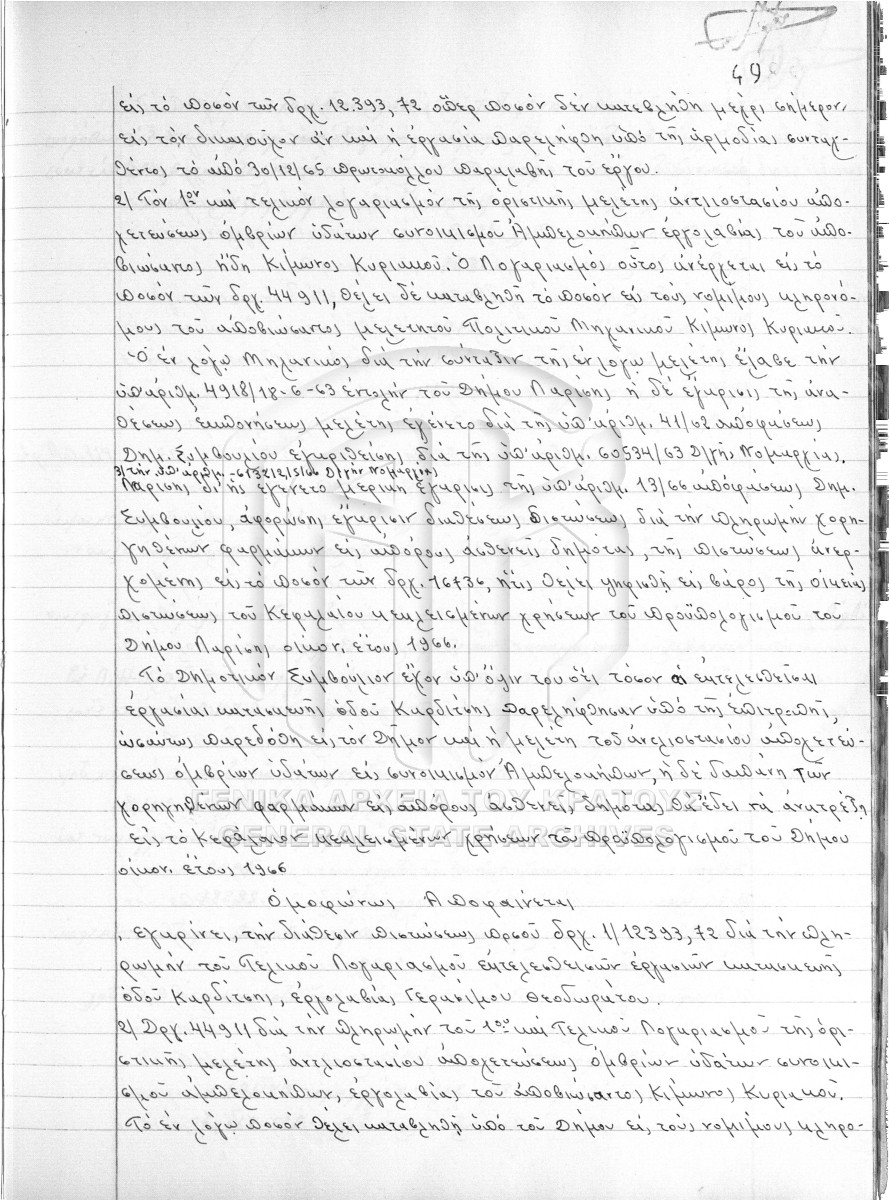 49
εἰς τό ποσόν τῶν δρχ. 12.393,72 ὅπερ ποσόν δέν κατεβλήθη μέχρι σήμερον,
εἰς τόν δικαιοῦχον ἄν καί ἡ ἐργασία παρελήφθη ὑπό τῆς ἁρμοδίας συνταχ-
θέντος τό ἀπό 30/12/65 πρωτοκόλλου παραλαβῆς τοῦ ἔργου.
2/ Τόν 1ον καί τελικόν λογαριασμόν τῆς ὁριστικῆς μελέτης ἀντλιοστασίου ἀπο-
χετεύσεως ὀμβρίων ὑδάτων συνοικισμοῦ Ἀμπελοκήπων ἐργολαβίας τοῦ ἀπο-
βιώσαντος ἤδη Κίμωνος Κυριακοῦ. Ὁ Λογαριασμός οὗτος ἀνέρχεται εἰς τό
ποσόν τῶν δρχ. 44911, θέλει δέ καταβληθῆ τό ποσόν εἰς τούς νομίμους κληρονό-
μους τοῦ ἀποβιώσαντος μελετητοῦ Πολιτικοῦ Μηχανικοῦ Κίμωνος Κυριακοῦ.
Ὁ ἐν λόγῳ Μηχανικός διά τήν σύνταξιν τῆς ἐν λόγῳ μελέτης ἔλαβε τήν
ὑπ' ἀριθμ. 4918/18-6-63 ἐντολήν τοῦ Δήμου Λαρίσης ἡ δέ ἔγκρισις τῆς ἀνα-
θέσεως ἐκπονήσεως μελέτης ἐγένετο διά τῆς ὑπ' ἀριθμ. 41/62 ἀποφάσεως
Δημ. Συμβουλίου ἐγκριθείσης διά τῆς ὑπ' ἀριθμ. 60534/63 Δ/γῆς Νομαρχίας.
3/ τήν ὑπ' ἀριθμ. Δ/γήν Νομαρχίας
Λαρίσης δι' ἧς ἐγένετο μερική ἔγκρισις τῆς ὑπ' ἀριθμ. 13/66 ἀποφάσεως Δημ.
Συμβουλίου, ἀφορώσης ἔγκρισιν διαθέσεως πιστώσεως διά τήν πληρωμήν χορη-
γηθέντων φαρμάκων εἰς ἀπόρους ἀσθενεῖς δημότας, τῆς πιστώσεως ἀνερ-
χομένης εἰς τό ποσόν τῶν δρχ. 16736, ἥτις θέλει ψηφισθῆ εἰς βάρος τῆς οἰκείας
πιστώσεως τοῦ Κεφαλαίου κεκλεισμένων χρήσεων τοῦ προϋπολογισμοῦ τοῦ
Δήμου Λαρίσης οἰκον. ἔτους 1966.
Τό Δημοτικόν Συμβούλιον ἔχον ὑπ' ὄψιν του ὅτι τόσον αἱ ἐκτελεσθεῖσαι
ἐργασίαι κατασκευῆς ὁδοῦ Καρδίτσης παρελήφθησαν ὑπό τῆς ἐπιτροπῆς,
ὡσαύτως παρεδόθη εἰς τόν Δῆμον καί ἡ μελέτη τοῦ ἀντλιοστασίου ἀποχετεύ-
σεως ὀμβρίων ὑδάτων εἰς συνοικισμόν Ἀμπελοκήπων, ἡ δέ δαπάνη τῶν
χορηγηθέντων φαρμάκων εἰς ἀπόρους ἀσθενεῖς δημότας θά ἔδει νά ἀνατρέξη
εἰς τό Κεφάλαιον κεκλεισμένων χρήσεων τοῦ προϋπολογισμοῦ τοῦ Δήμου
οἰκον. ἔτους 1966
Ὁμοφώνως Ἀποφαίνεται
ἐγκρίνει, τήν διάθεσιν πιστώσεως ποσοῦ δρχ. 1/12393,72 διά τήν πλη-
ρωμήν τοῦ Τελικοῦ Λογαριασμοῦ ἐκτελεσθεισῶν ἐργασιῶν κατασκευῆς
ὁδοῦ Καρδίτσης, ἐργολαβίας Γερασίμου Θεοδωράτου.
2/ Δρχ. 44911 διά τήν πληρωμήν τοῦ 1ου καί Τελικοῦ Λογαριασμοῦ τῆς ὁρι-
στικῆς μελέτης ἀντλιοστασίου ἀποχετεύσεως ὀμβρίων ὑδάτων συνοικι-
σμοῦ ἀμπελοκήπων, ἐργολαβίας τοῦ ἀποβιώσαντος Κίμωνος Κυριακοῦ.
Τό ἐν λόγῳ ποσόν θέλει καταβληθῆ ὑπό τοῦ Δήμου εἰς τούς νομίμους κληρο-
ΓΕΝΙΚΑ ΑΡΧΕΙΑ ΤΟΥ ΚΡΑΤΟΥΣ
GENERAL STATE ARCHIVES